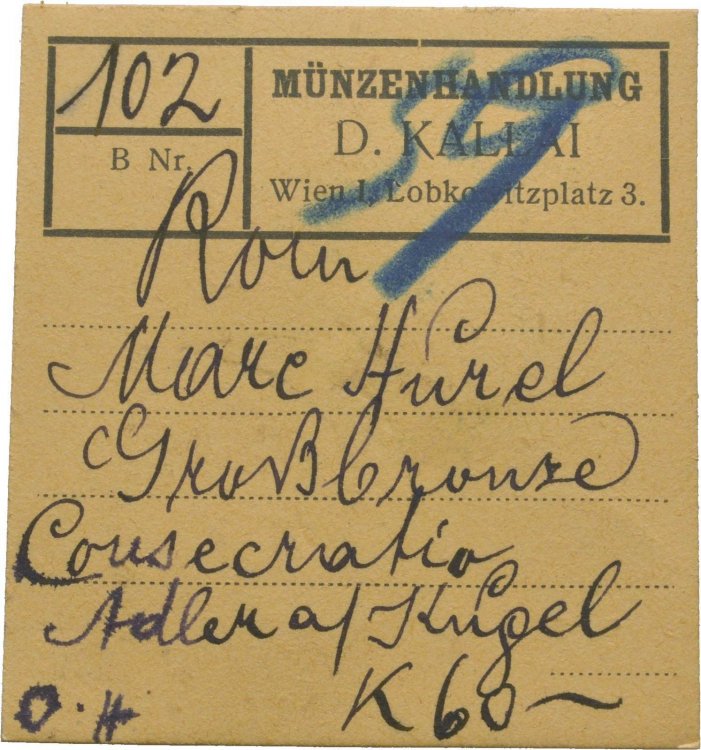 102
B Nr.
MÜNZENHANDLUNG
D. KALLAI
Wien I, Lobkowitzplatz 3.
59
Rom
Marc Aurel
Großbronze
Consecratio
Adler a/ Kugel
K 60 ~
O. H